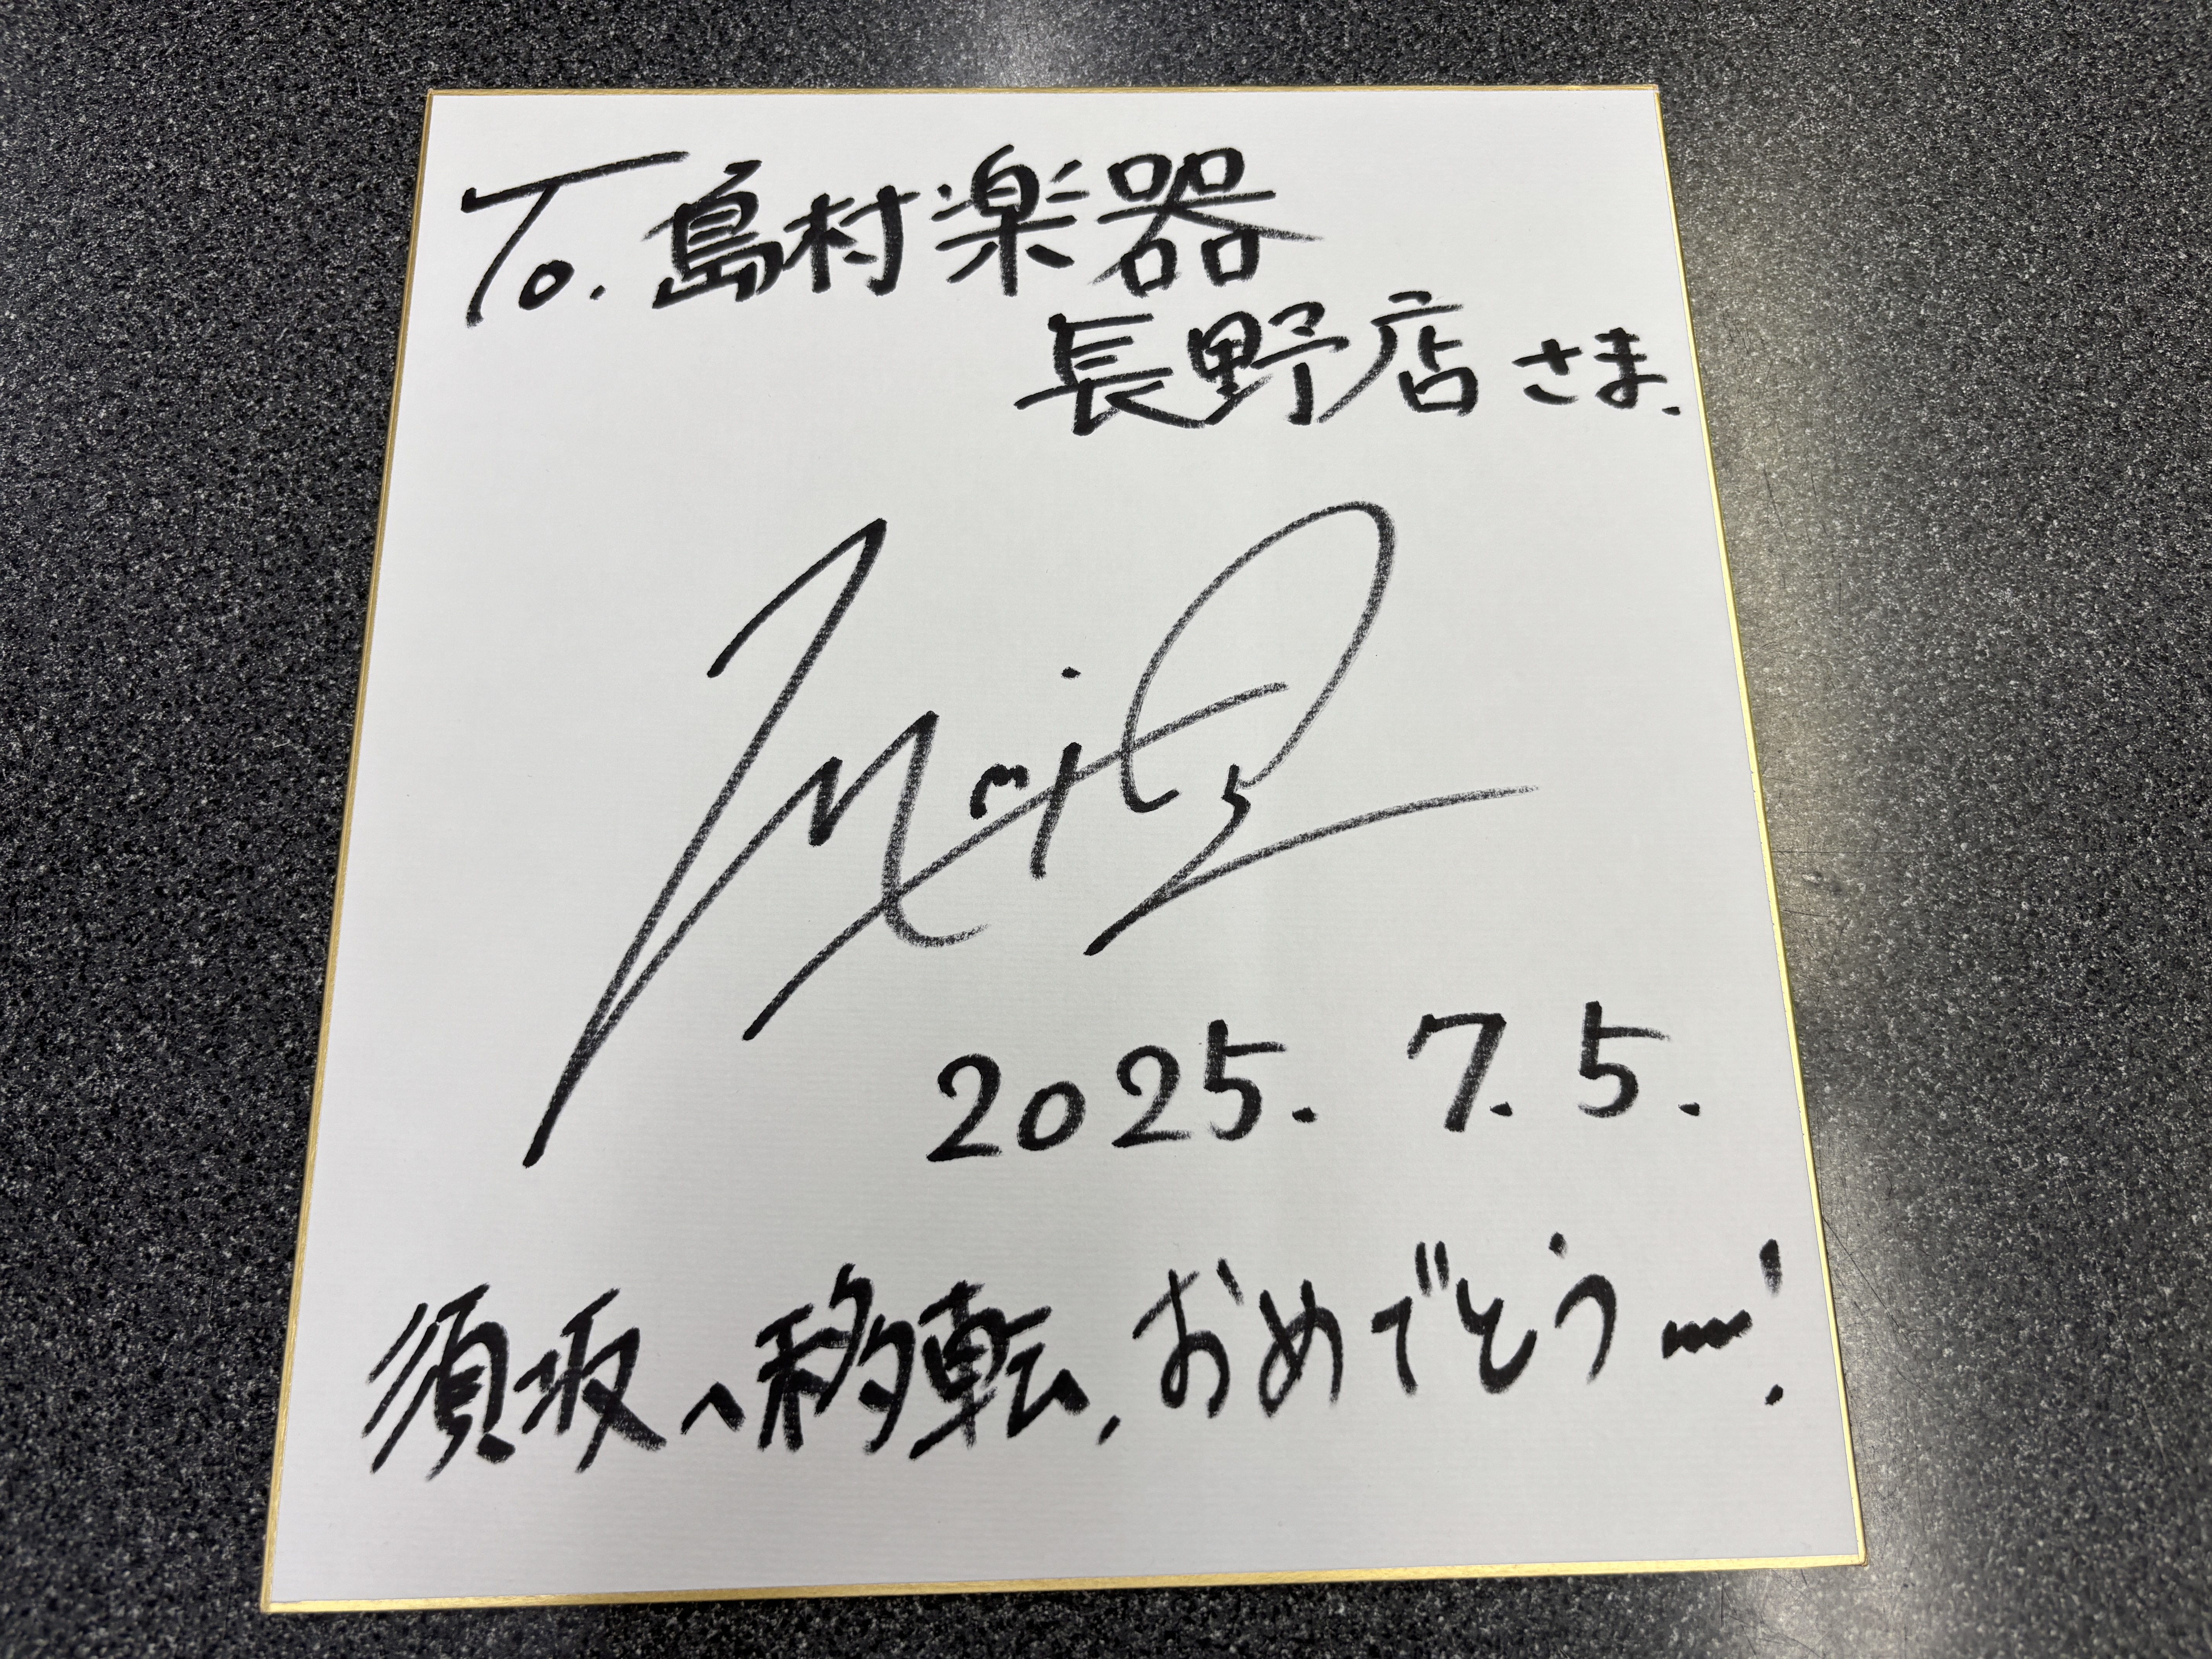 To. 島村楽器
長野店 さま.
2025. 7. 5.
須坂へ移転, おめでとうー!